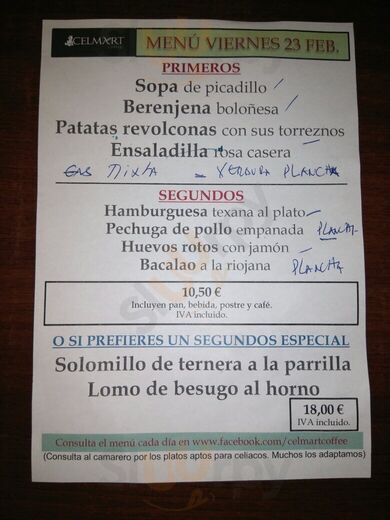 CELMART
MENÚ VIERNES 23 FEB.
PRIMEROS
Sopa de picadillo
Berenjena boloñesa
Patatas revolconas con sus torreznos
Ensaladilla rosa casera
ENS MIXTA - VERDURA PLANCHA
SEGUNDOS
Hamburguesa texana al plato
Pechuga de pollo empanada PLANCH
Huevos rotos con jamón
Bacalao a la riojana PLANCHA
10,50 €
Incluyen pan, bebida, postre y café.
IVA incluido.
O SI PREFIERES UN SEGUNDOS ESPECIAL
Solomillo de ternera a la parrilla
Lomo de besugo al horno
18,00 €
IVA incluido.
Consulta el menú cada día en www.facebook.com/celmartcoffee
(Consulta al camarero por los platos aptos para celiacos. Muchos los adaptamos)